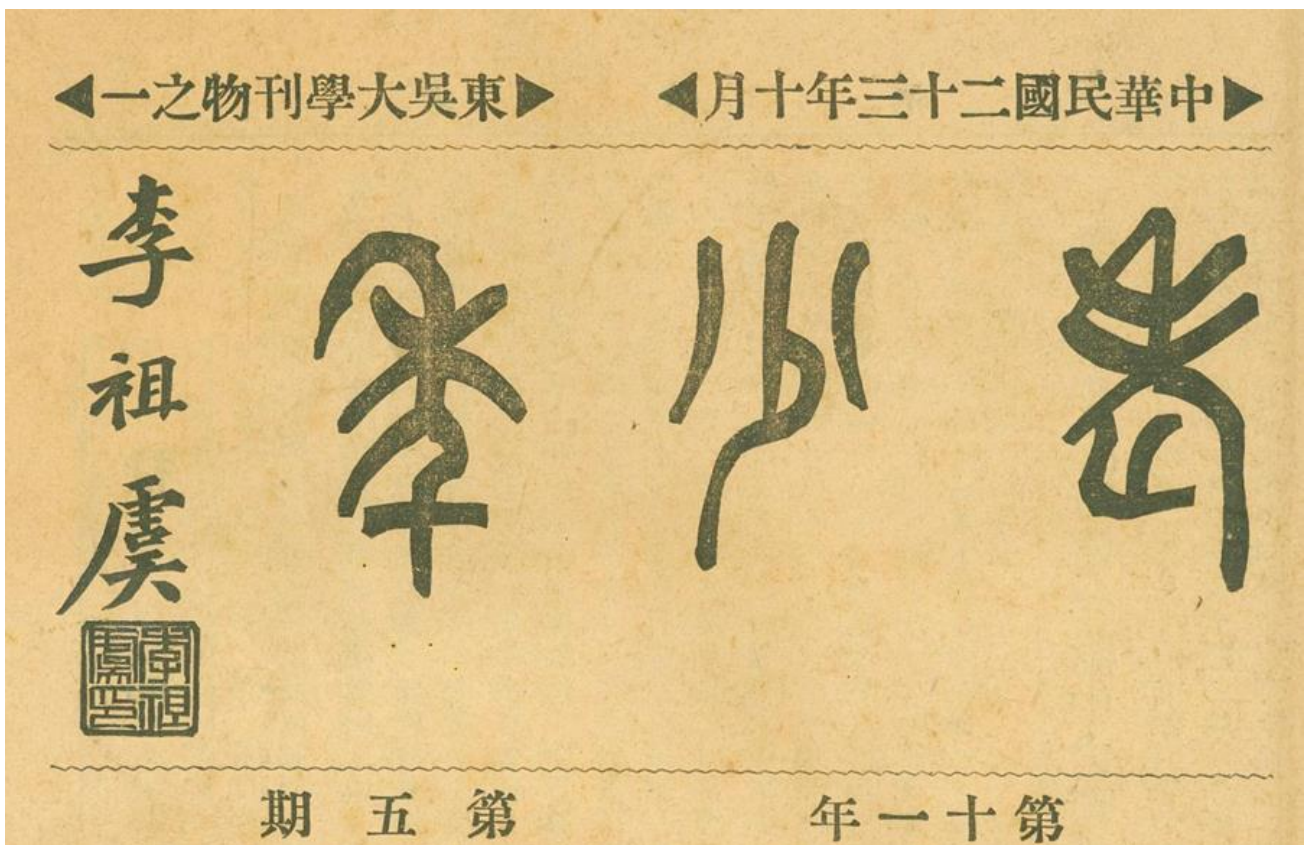 中華民國二十三年十月
東吳大學刊物之一
老少年
李祖虞
李祖虞印
第十一年
第五期